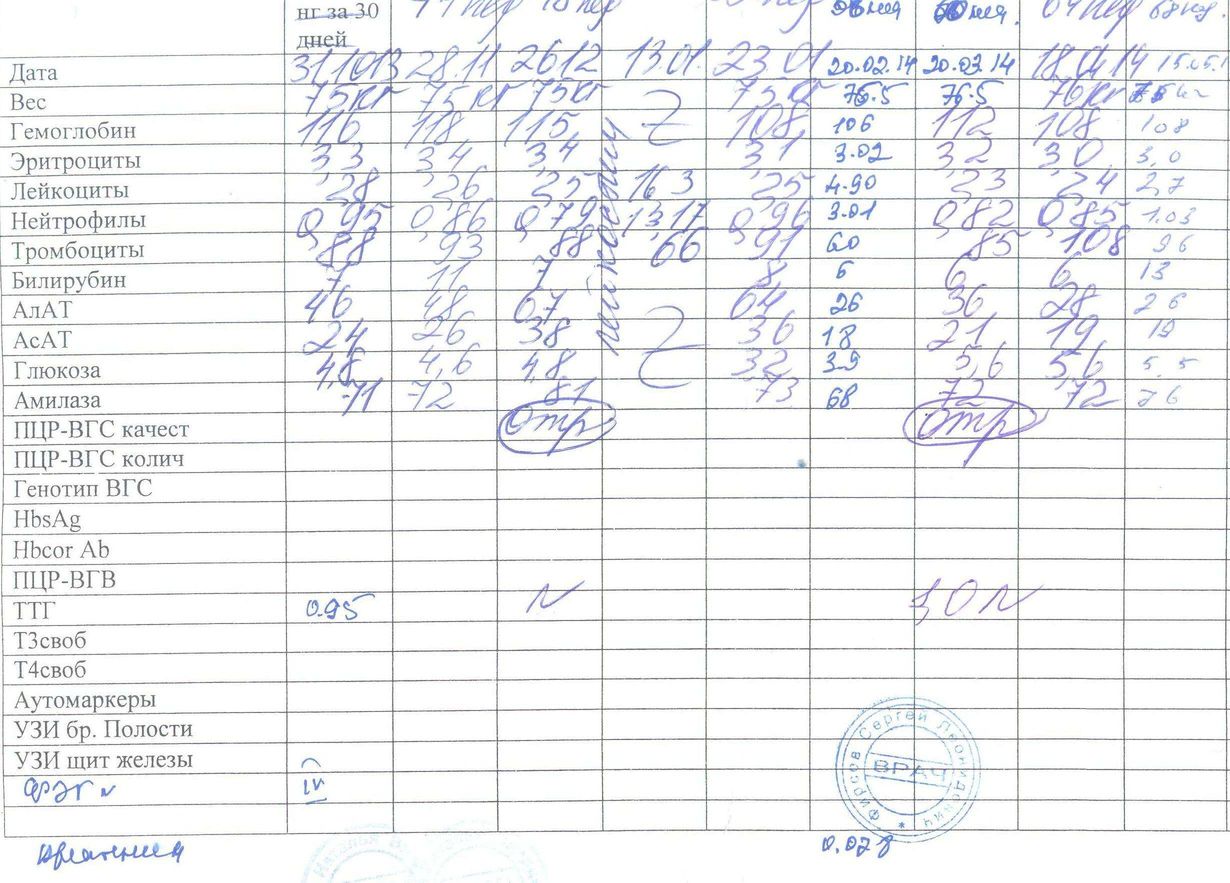 нг за 30
дней
Дата 311013 28.11 2612 1301 2301 20.02.14 20.02.14 18.04 14 15.05.1
Вес 75кг 75кг 75кг 75кг 76.5 76.5 76кг
Гемоглобин 116 118 115 108 106 112 108 108
Эритроциты 3,3 3,4 3,4 3,1 3.02 3,2 3,0 3,0
Лейкоциты 2,8 2,6 2,5 16,3 2,5 4.90 2,3 2,4 2,7
Нейтрофилы 0,95 0,86 0,79 13,17 0,96 3.01 0,82 0,85 1.03
Тромбоциты 88 93 88 66 91 60 85 108 96
Билирубин 7 11 7 8 6 6 6 13
АлАТ 46 48 67 64 26 36 28 26
АсАТ 24 26 38 36 18 21 19 19
Глюкоза 4,8 4,6 4,8 32 3.9 5,6 5,6 5.5
Амилаза 71 72 81 73 68 72 72 76
ПЦР-ВГС качест отр отр
ПЦР-ВГС колич
Генотип ВГС
HbsAg
Hbcor Ab
ПЦР-ВГВ
ТТГ 0.95 N 1,0 N
Т3своб
Т4своб
Аутомаркеры
УЗИ бр. Полости
УЗИ щит железы
ФЭГ N IV
Фирсов Сергей Леонидович
ВРАЧ
0.078